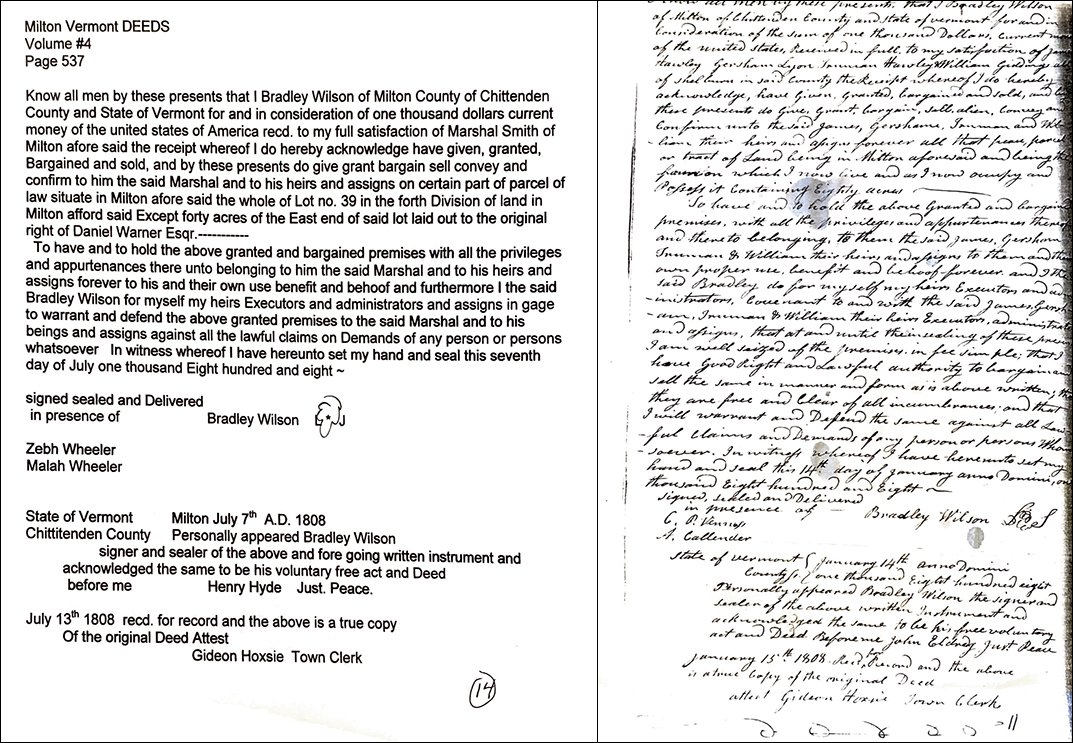 Milton Vermont DEEDS
Volume #4
Page 537
Know all men by these presents that I Bradley Wilson of Milton County of Chittenden
County and State of Vermont for and in consideration of one thousand dollars current
money of the united states of America recd. to my full satisfaction of Marshal Smith of
Milton afore said the receipt whereof I do hereby acknowledge have given, granted,
Bargained and sold, and by these presents do give grant bargain sell convey and
confirm to him the said Marshal and to his heirs and assigns on certain part of parcel of
law situate in Milton afore said the whole of Lot no. 39 in the forth Division of land in
Milton afford said Except forty acres of the East end of said lot laid out to the original
right of Daniel Warner Esqr.-----------
To have and to hold the above granted and bargained premises with all the privileges
and appurtenances there unto belonging to him the said Marshal and to his heirs and
assigns forever to his and their own use benefit and behoof and furthermore I the said
Bradley Wilson for myself my heirs Executors and administrators and assigns in gage
to warrant and defend the above granted premises to the said Marshal and to his
beings and assigns against all the lawful claims on Demands of any person or persons
whatsoever In witness whereof I have hereunto set my hand and seal this seventh
day of July one thousand Eight hundred and eight ~
signed sealed and Delivered
in presence of Bradley Wilson
Zebh Wheeler
Malah Wheeler
State of Vermont Milton July 7th A.D. 1808
Chittitenden County Personally appeared Bradley Wilson
signer and sealer of the above and fore going written instrument and
acknowledged the same to be his voluntary free act and Deed
before me Henry Hyde Just. Peace.
July 13th 1808 recd. for record and the above is a true copy
Of the original Deed Attest
Gideon Hoxsie Town Clerk
14
Know all men by these presents, that I Bradley Wilson
of Milton of Chittenden County and state of vermont for and in
Consideration of the sum of one thousand Dollars, Current
of the united states, Received in full, to my satisfaction of
Hawley Gershom Lyon Truman Hawley & William Giddings
of shelburn in said County the Receipt whereof I do hereby
acknowledge, have Given, Granted, bargained and sold, and
these presents do Give, Grant, bargain, sell, alien, Convey and
Confirm unto the said James, Gershom, Truman and
-liam their heirs and assigns forever all that peace, parcel
or tract of Land being in Milton aforesaid and being the
farm on which I now live and as I now occupy and
Possess it Containing Eighty acres
To have and to hold the above Granted and bargained
premises, with all the priviledges and appurtenances thereof
and thereto belonging, to them the said James, Gershom
Truman & William their heirs and assigns to them and their
own proper use, benefit and behoof forever. and I the
said Bradley do for myself my heirs Executors and ad
-ministrators, Covenant to and with the said James, Gersh
-om, Truman & William their heirs Executors, administrators
and assigns, that at and until the insealing of these presents
I am well seized of the premises, in fee simple; that I
have Good Right and Lawful authority to bargain and
sell the same in manner and form as is above written; that
they are free and Clear of all incumbrances; and that
I will warrant and Defend the same against all Law-
-ful Claims and Demands of any person or persons Whom
-soever. In witness whereof I have hereunto set my
hand and seal this 14th day of January anno Domini, one
thousand Eight hundred and Eight ~
signed, sealed and Delivered
in presence of Bradley Wilson
A. Callender
State of vermont { January 14th anno Domini
County ss { one thousand Eight hundred eight
Personally appeared Bradley Wilson the signer and
sealer of the above written Instrument and
acknowledged the same to be his free voluntary
act and Deed Before me John Eldredg Just Peace
January 15th 1808. Recd for Record and the above
is a true Copy of the original Deed
attest Gideon Hoxsie Town Clerk
11